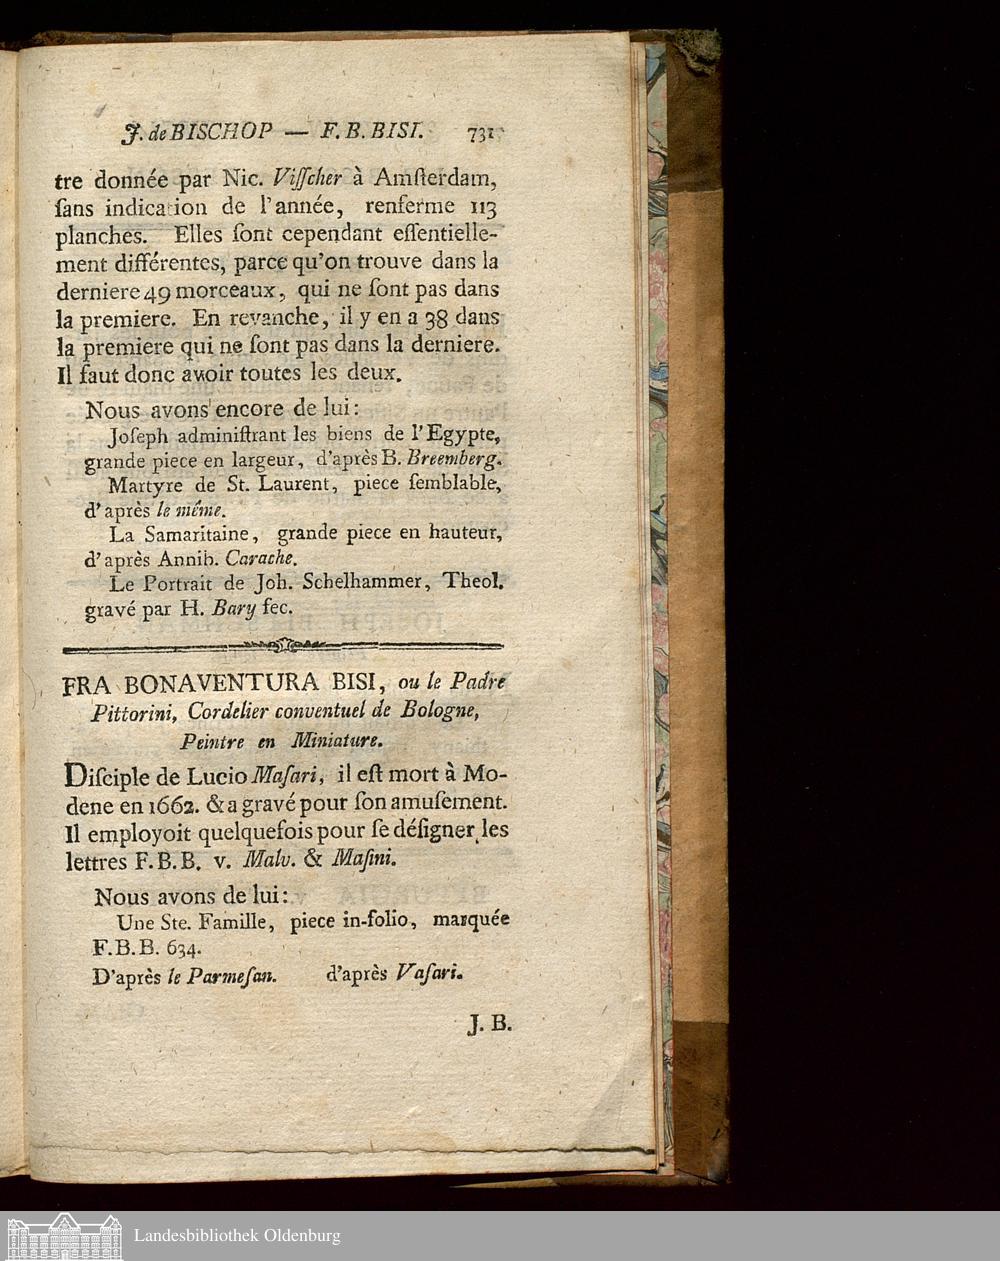 J. de BISCHOP — F. B. BISI. 731
tre donnée par Nic. Viſſcher à Amſterdam,
ſans indication de l'année, renferme 113
planches. Elles ſont cependant eſſentielle-
ment différentes, parce qu'on trouve dans la
derniere 49 morceaux, qui ne ſont pas dans
la premiere. En revanche, il y en a 38 dans
la premiere qui ne ſont pas dans la derniere.
Il faut donc avoir toutes les deux.
Nous avons encore de lui:
Joſeph adminiſtrant les biens de l'Egypte,
grande piece en largeur, d'après B. Breemberg.
Martyre de St. Laurent, piece ſemblable,
d'après le même.
La Samaritaine, grande piece en hauteur,
d'après Annib. Carache.
Le Portrait de Joh. Schelhammer, Theol.
gravé par H. Bary fec.
FRA BONAVENTURA BISI, ou le Padre
Pittorini, Cordelier conventuel de Bologne,
Peintre en Miniature.
Diſciple de Lucio Maſari, il eſt mort à Mo-
dene en 1662. & a gravé pour ſon amuſement.
Il employoit quelquefois pour ſe déſigner les
lettres F. B. B. v. Malv. & Maſini.
Nous avons de lui:
Une Ste. Famille, piece in-folio, marquée
F. B. B. 634.
D'après le Parmeſan. d'après Vaſari.
J. B.
Landesbibliothek Oldenburg